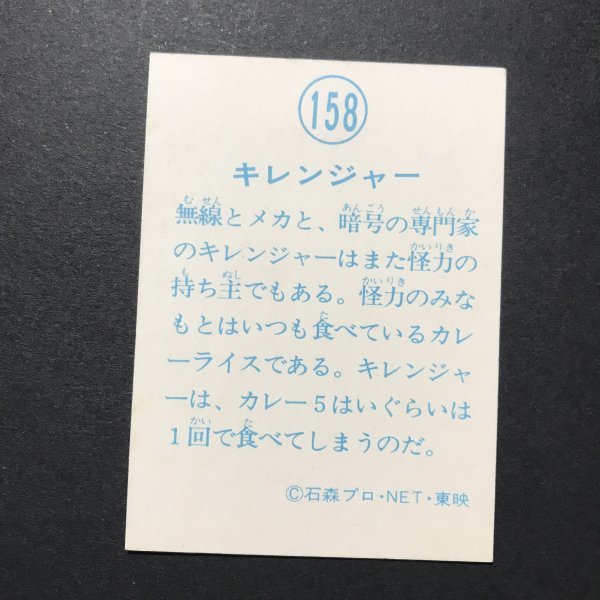 158
キレンジャー
無線とメカと、暗号の専門家
のキレンジャーはまた怪力の
持ち主でもある。怪力のみな
もとはいつも食べているカレ
ーライスである。キレンジャ
ーは、カレー5はいぐらいは
1回で食べてしまうのだ。
©石森プロ・NET・東映